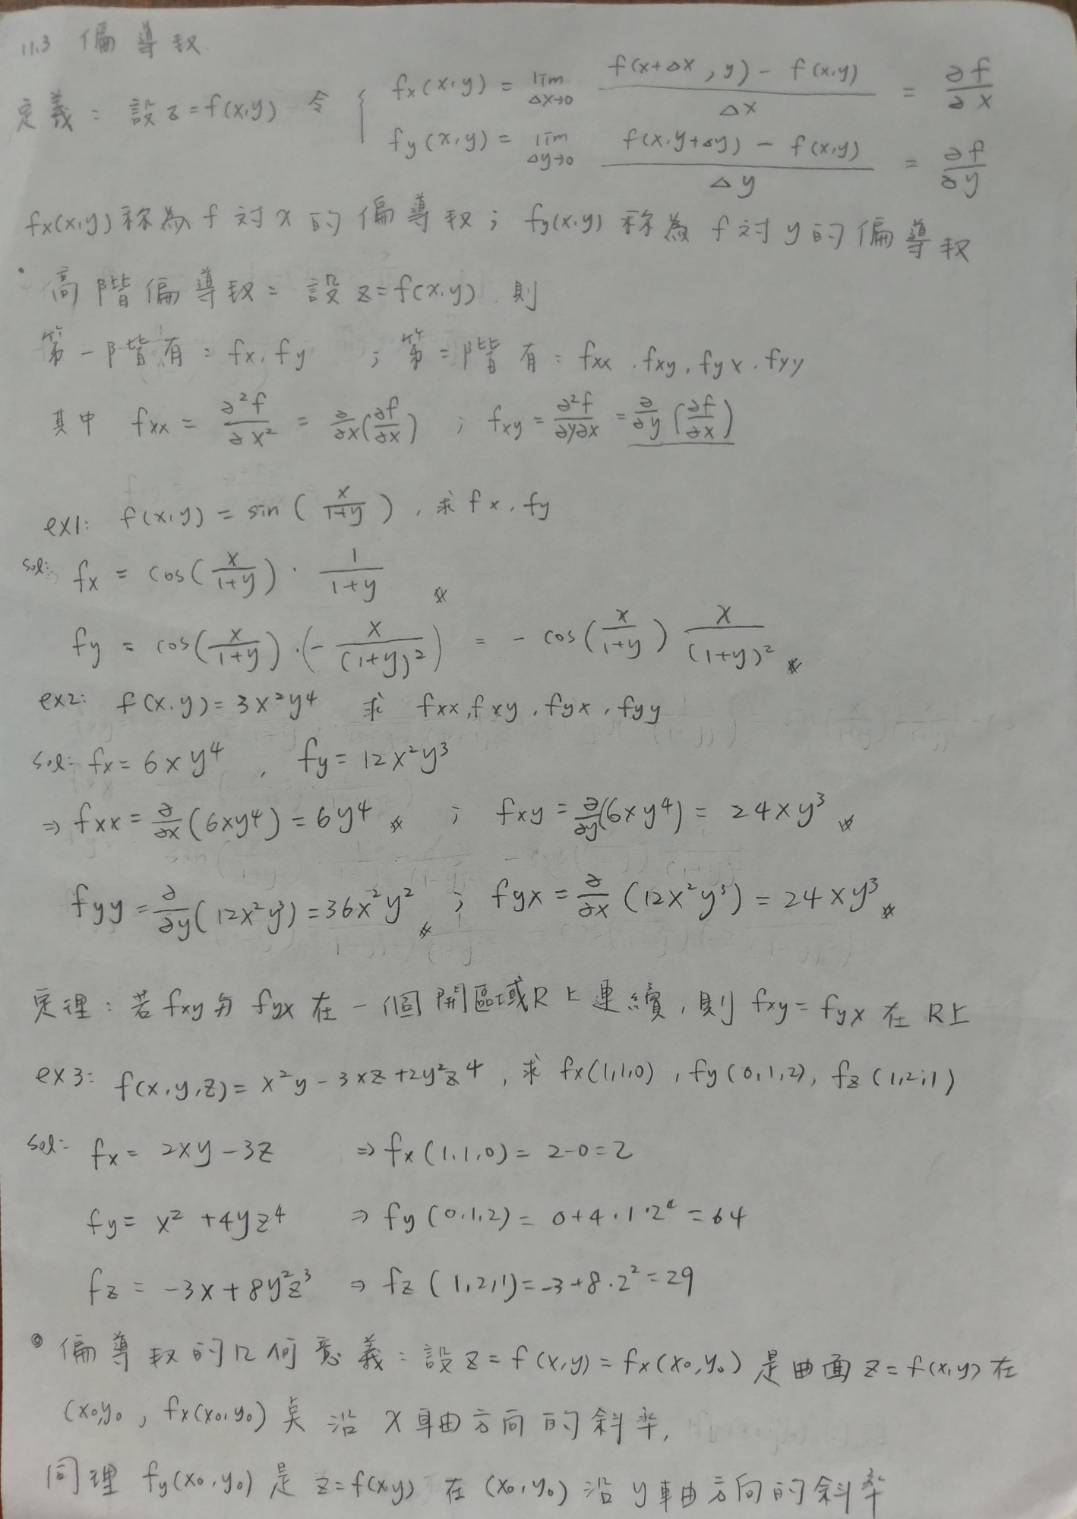 11.3 偏導数
定義：設z=f(x,y) 令 { fx(x,y) = lim Δx→0 f(x+Δx, y) - f(x,y) / Δx = ∂f/∂x
fy(x,y) = lim Δy→0 f(x,y+Δy) - f(x,y) / Δy = ∂f/∂y
fx(x,y)称為f対x的偏導数；fy(x,y)称為f対y的偏導数
• 高階偏導数：設z=f(x,y) 則
第一階有：fx, fy ；第二階有：fxx, fxy, fyx, fyy
其中 fxx = ∂²f/∂x² = ∂/∂x(∂f/∂x) ; fxy = ∂²f/∂y∂x = ∂/∂y(∂f/∂x)
ex1: f(x,y) = sin(x/1+y), 求fx, fy
sol: fx = cos(x/1+y) · 1/1+y
fy = cos(x/1+y)·(-x/(1+y)²) = -cos(x/1+y) x/(1+y)²
ex2: f(x,y)=3x²y⁴ 求 fxx, fxy, fyx, fyy
sol: fx=6xy⁴, fy=12x²y³
⇒ fxx = ∂/∂x(6xy⁴)=6y⁴ ; fxy = ∂/∂y(6xy⁴) = 24xy³
fyy = ∂/∂y(12x²y³)=36x²y² ; fyx = ∂/∂x(12x²y³)=24xy³
定理：若fxy与fyx在一個開區域R上連續,則fxy=fyx在R上
ex3: f(x,y,z)=x²y-3xz+2y²z⁴, 求fx(1,1,0), fy(0,1,2), fz(1,2,1)
sol: fx = 2xy-3z ⇒ fx(1,1,0)=2-0=2
fy = x²+4yz⁴ ⇒ fy(0,1,2)=0+4·1·2⁴=64
fz = -3x+8y²z³ ⇒ fz(1,2,1)=-3+8·2²=29
◎ 偏導数的几何意義：設z=f(x,y)=fx(x₀,y₀)是曲面z=f(x,y)在
(x₀y₀, fx(x₀,y₀)点沿x軸方向的斜率,
同理fy(x₀,y₀)是z=f(xy)在(x₀,y₀)沿y軸方向的斜率